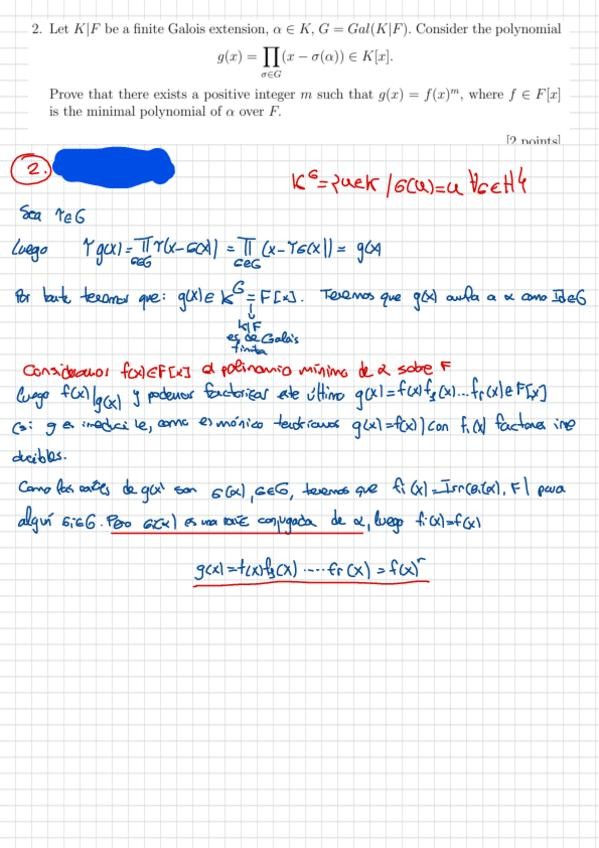 2. Let K|F be a finite Galois extension, α ∈ K, G = Gal(K|F). Consider the polynomial
g(x) = ∏_{σ∈G} (x − σ(α)) ∈ K[x].
Prove that there exists a positive integer m such that g(x) = f(x)^m, where f ∈ F[x]
is the minimal polynomial of α over F.
[2 points]
2.
K^G = {u∈K / σ(u)=u ∀σ∈H}
Sea τ∈G
Luego τg(x) = ∏_{σ∈G} τ(x-σ(α)) = ∏_{σ∈G} (x-τσ(α)) = g(x)
Por tanto tenemos que: g(x)∈ K^G = F[x]. Tenemos que g(x) anula a α como Id∈G
↓
K|F
es de Galois
finita
Consideramos f(x)∈F[x] el polinomio mínimo de α sobre F
luego f(x)|g(x) y podemos factorizar este último g(x)=f(x)f_2(x)...f_r(x)∈F[x]
(si g es irreducible, como es mónico tendríamos g(x)=f(x)) con f_i(x) factores irre
ducibles.
Como las raíces de g(x) son σ(α), σ∈G, tenemos que f_i(x)=Irr(σ_i(α), F) para
algún σ_i∈G. Pero σ_i(α) es una raíz conjugada de α, luego f_i(x)=f(x)
g(x)=f(x)f_2(x)....f_r(x) = f(x)^r